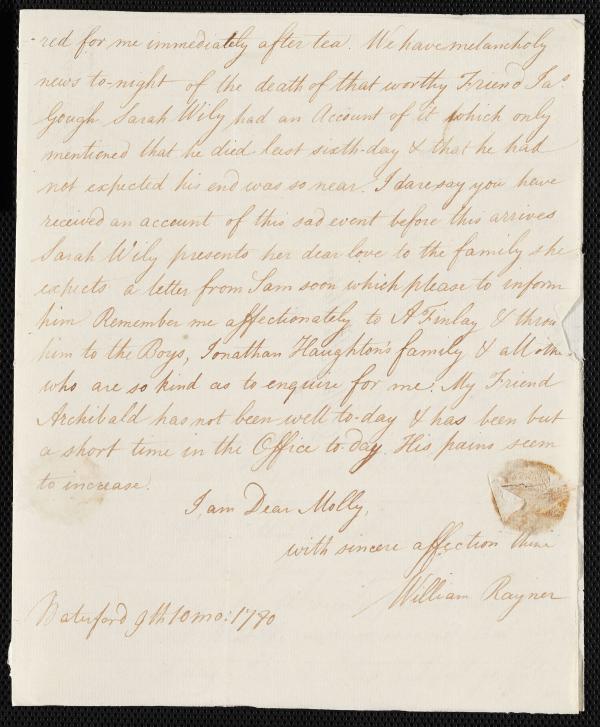 red for me immediately after tea. We have melancholy
news to-night of the death of that worthy Friend Jas
Gough Sarah Wily had an Account of it which only
mentioned that he died last sixth-day & that he had
not expected his end was so near. I dare say you have
received an account of this sad event before this arrives
Sarah Wily presents her dear love to the family she
expects a letter from Sam soon which please to inform
him Remember me affectionately to A Finlay & thro
him to the Boys, Jonathan Haughton's family & all othe
who are so kind as to enquire for me. My Friend
Archibald has not been well to-day & has been but
a short time in the Office to-day. His pains seem
to increase.
I am Dear Molly,
with sincere affection thine
William Rayner
Waterford 9th 10mo: 1780